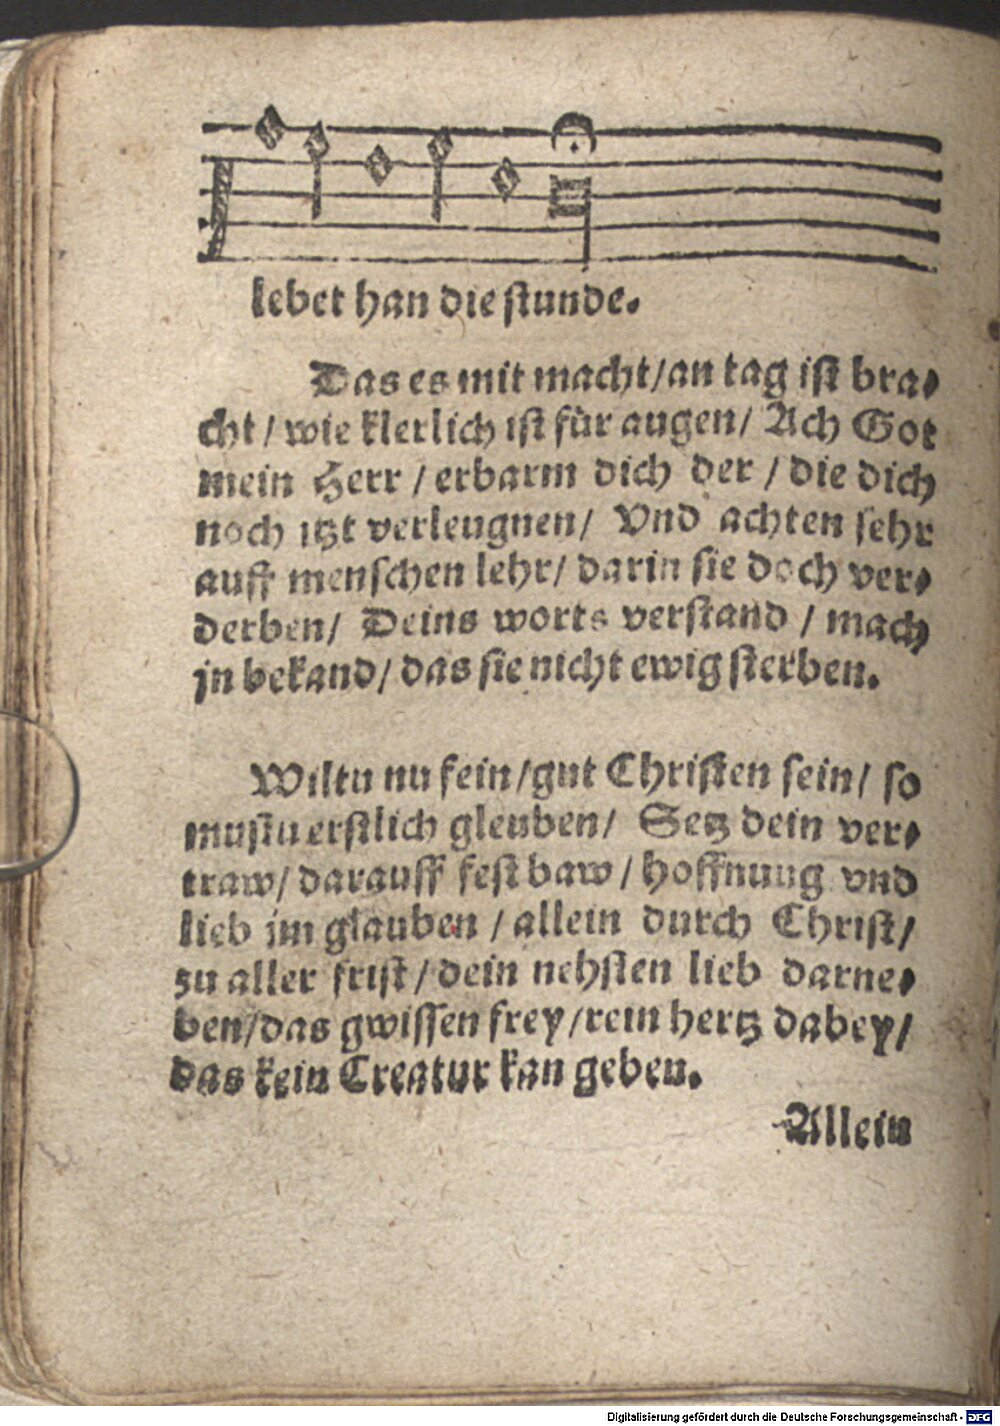 lebet han die stunde.
Das es mit macht/an tag ist bra⸗
cht/ wie klerlich ist für augen/ Ach Got
mein Herr / erbarm dich der / die dich
noch itzt verleugnen/ Vnd achten sehr
auff menschen lehr/ darin sie doch ver⸗
derben/ Deins worts verstand / mach
jn bekand/ das sie nicht ewig sterben.
Wiltu nu fein/gut Christen sein/ so
mustu erstlich gleuben/ Setz dein ver⸗
traw/ darauff fest baw / hoffnung vnd
lieb im glauben / allein durch Christ/
zu aller frist/ dein nehsten lieb darne⸗
ben/das gwissen frey/rein hertz dabey/
das kein Creatur kan geben.
Allein
Digitalisierung gefördert durch die Deutsche Forschungsgemeinschaft - DFG